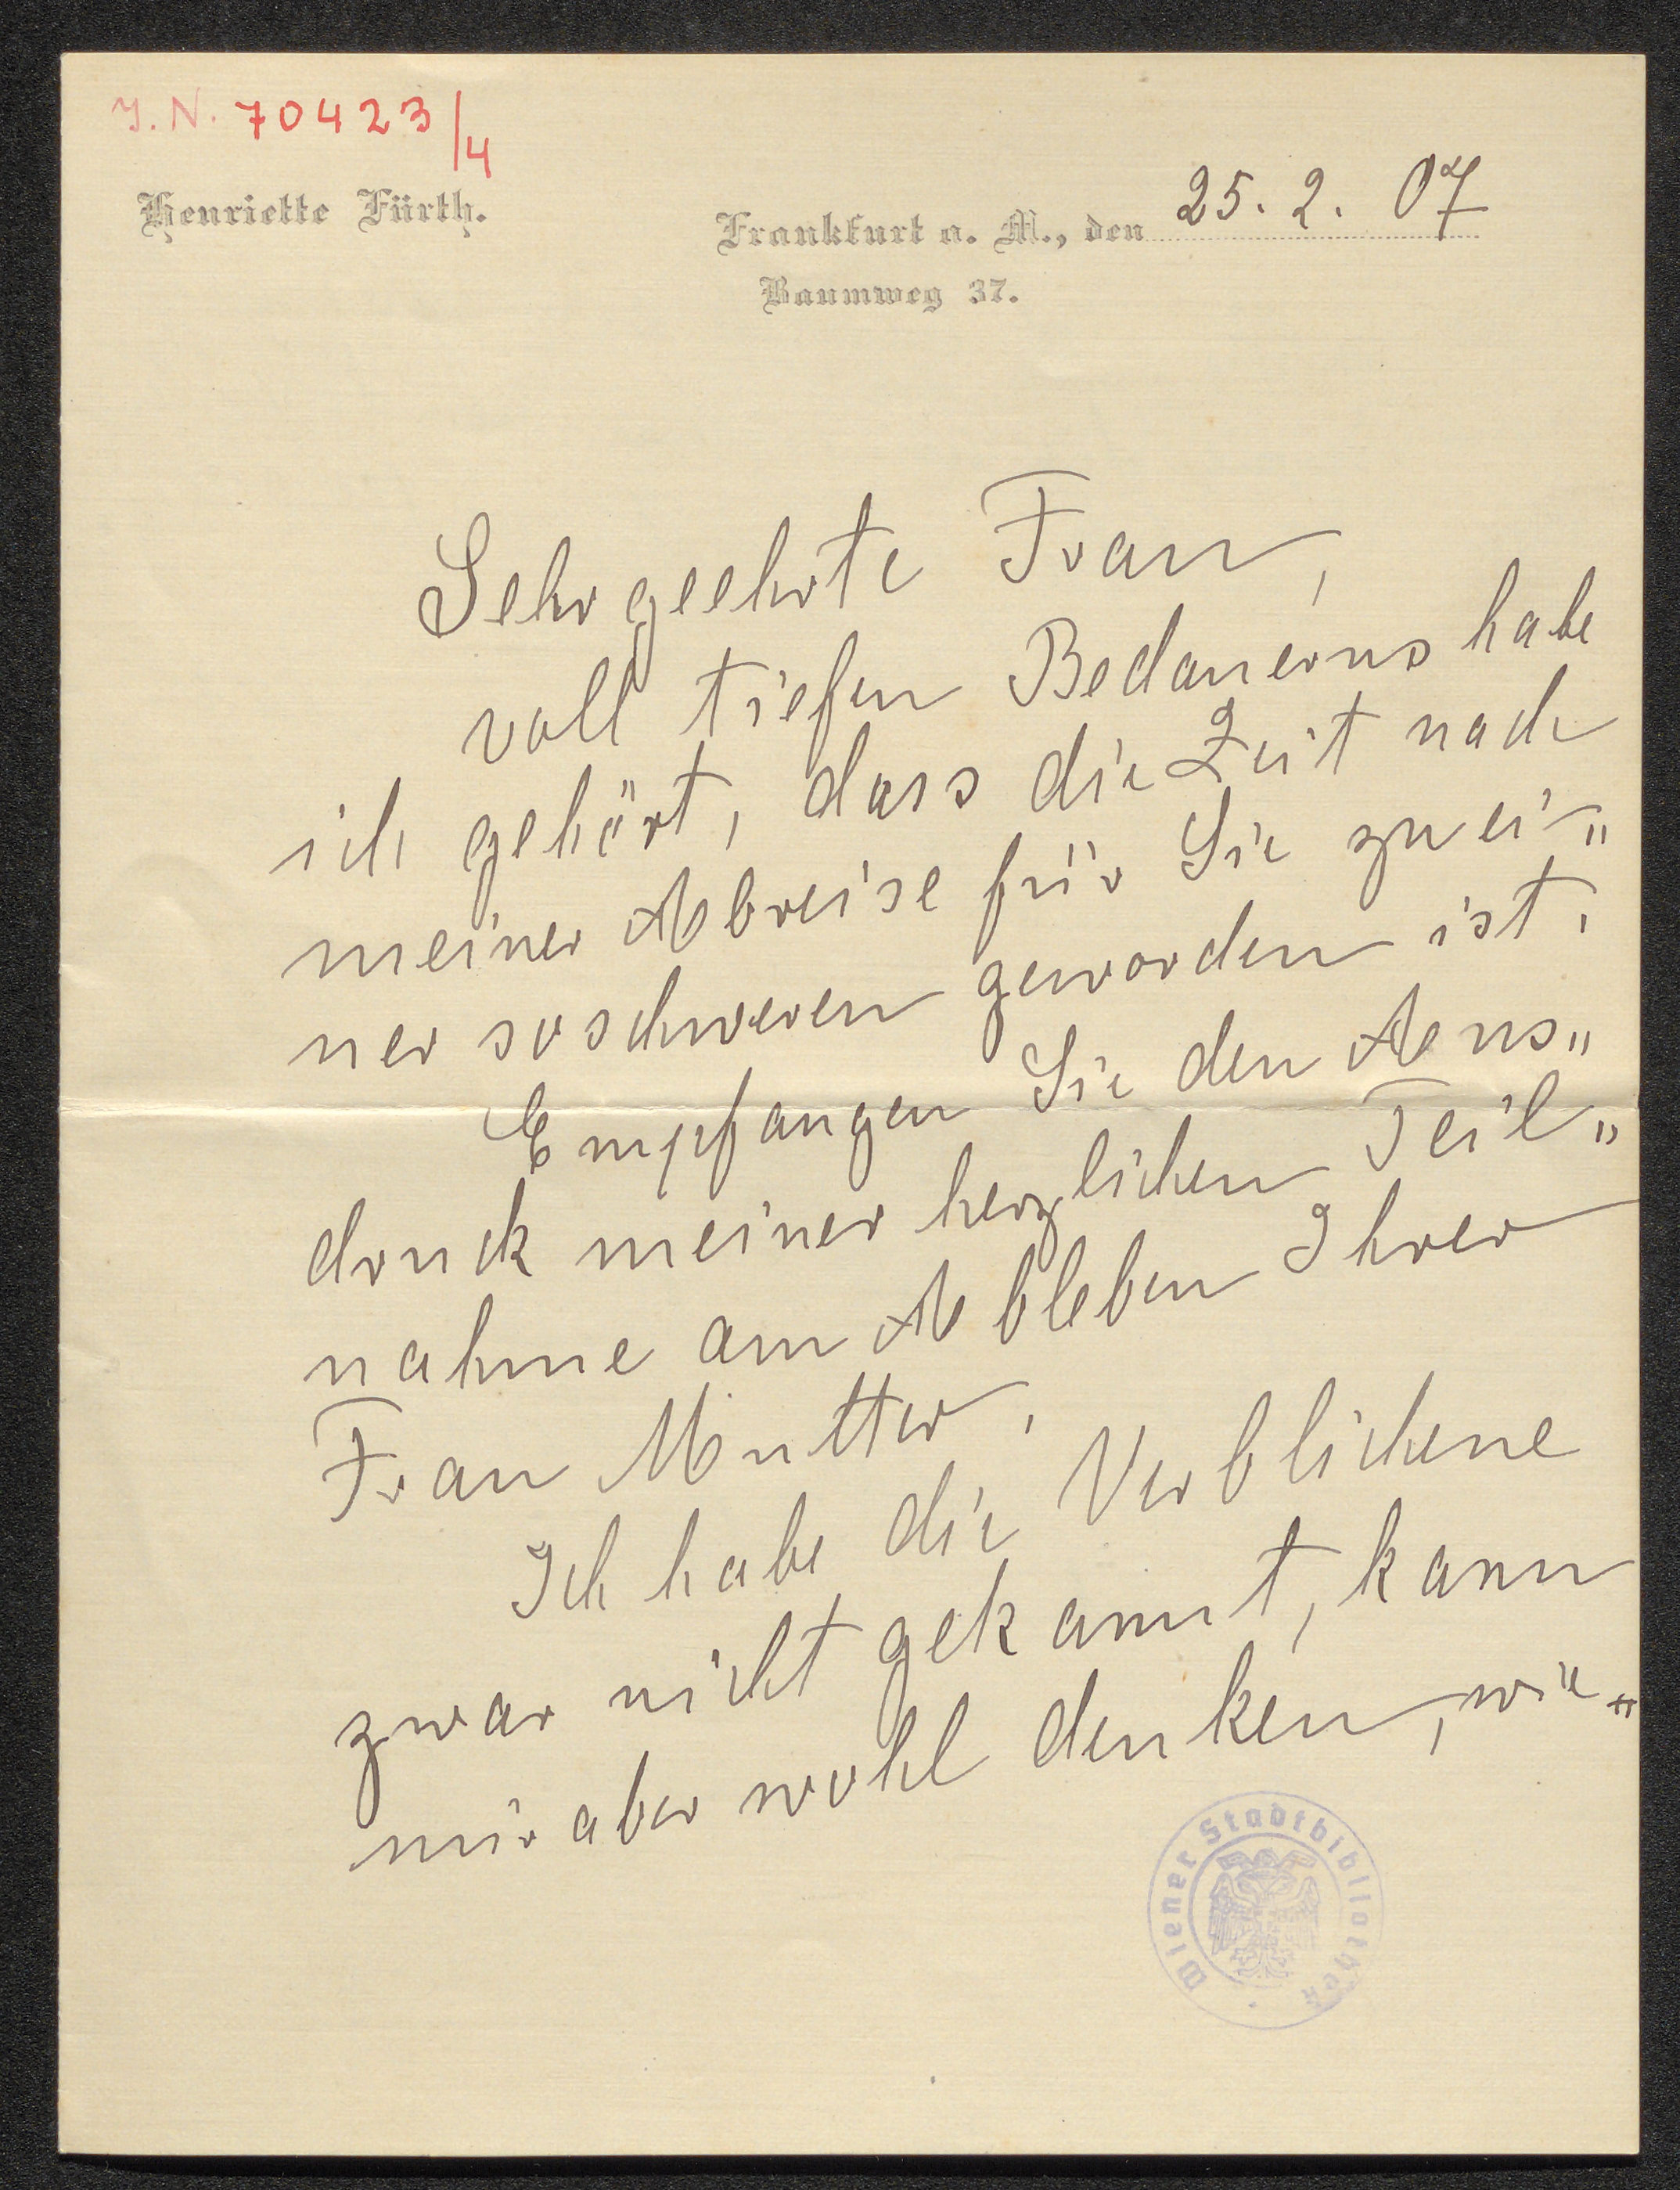 J. N. 70423/4
Henriette Fürth.
Frankfurt a. M., den 25. 2. 07
Baumweg 37.
Sehr geehrte Frau,
voll tiefen Bedauerns habe
ich gehört, dass die Zeit nach
meiner Abreise für Sie zu ei„
ner so schweren geworden ist.
Empfangen Sie den Aus„
druck meiner herzlichen Teil„
nahme am Ableben Ihrer
Frau Mutter.
Ich habe die Verblichene
zwar nicht gekannt, kann
mir aber wohl denken, wie„
Wiener Stadtbibliothek